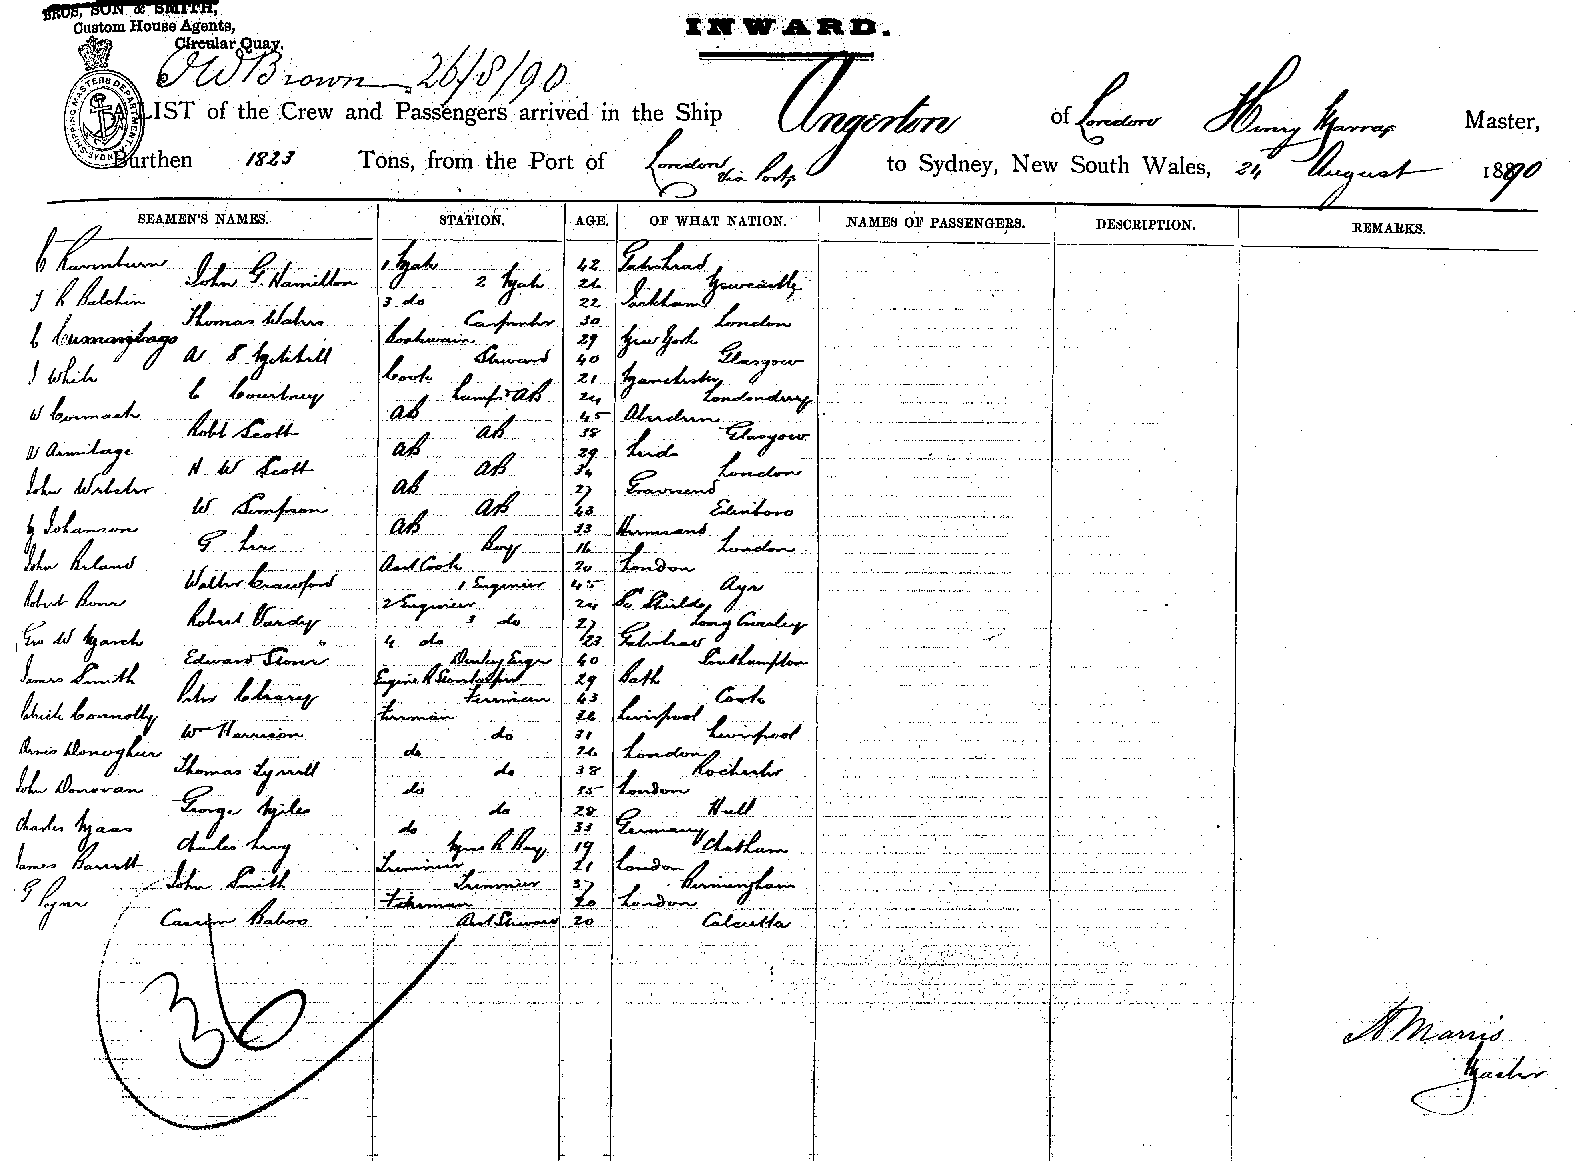 BROS, SON & SMITH,
Custom House Agents,
Circular Quay.
INWARD.
Brown 26/8/90
A LIST of the Crew and Passengers arrived in the Ship Angerton of London Henry Master,
Burthen 1823 Tons, from the Port of London via Ports to Sydney, New South Wales, 24 August 1890
SEAMEN'S NAMES. STATION. AGE. OF WHAT NATION. NAMES OF PASSENGERS. DESCRIPTION. REMARKS.
1 Mate 42 Gateshead
John G. Hamilton 2 Mate 26 Newcastle
J R Balchin 3 do 22
Thomas Waters Carpenter 30 London
Boatswain 29 New York
A S Mitchell Steward 40 Glasgow
J White Cook 21 Manchester
C Courtney Lamps AB 24 Londonderry
W Cormack AB 45 Aberdeen
Robt Scott AB 38 Glasgow
W Armitage AB 29 Leeds
H W Scott AB 34 London
John Webster AB 27 Gravesend
W Simpson AB 43 Edinboro
Johanson AB 33
G Lee Boy 16 London
John Ireland Asst Cook 20 London
Walter Crawford 1 Engineer 45 Ayr
Robert 2 Engineer 24 So Shields
Robert Vardy 3 do 27 Long
Geo W March 4 do 23 Gateshead
Edward Donkey Engr 40 Southampton
James Smith Engine R Storekeeper 29 Bath
Peter Fireman 43 Cork
Patrick Connolly Fireman 26 Liverpool
Wm Harrison do 31 Liverpool
Denis Donoghue do 26 London
Thomas Tyrrell do 38 Rochester
John Donovan do 35 London
George Miles do 28 Hull
Charles Maas do 33 Germany
Charles Mess R Boy 19 Chatham
James Barrett Trimmer 21 London
John Smith Trimmer 37 Birmingham
G Fireman 20 London
Cassim Baboo Asst Steward 20 Calcutta
36
H Marris
Master